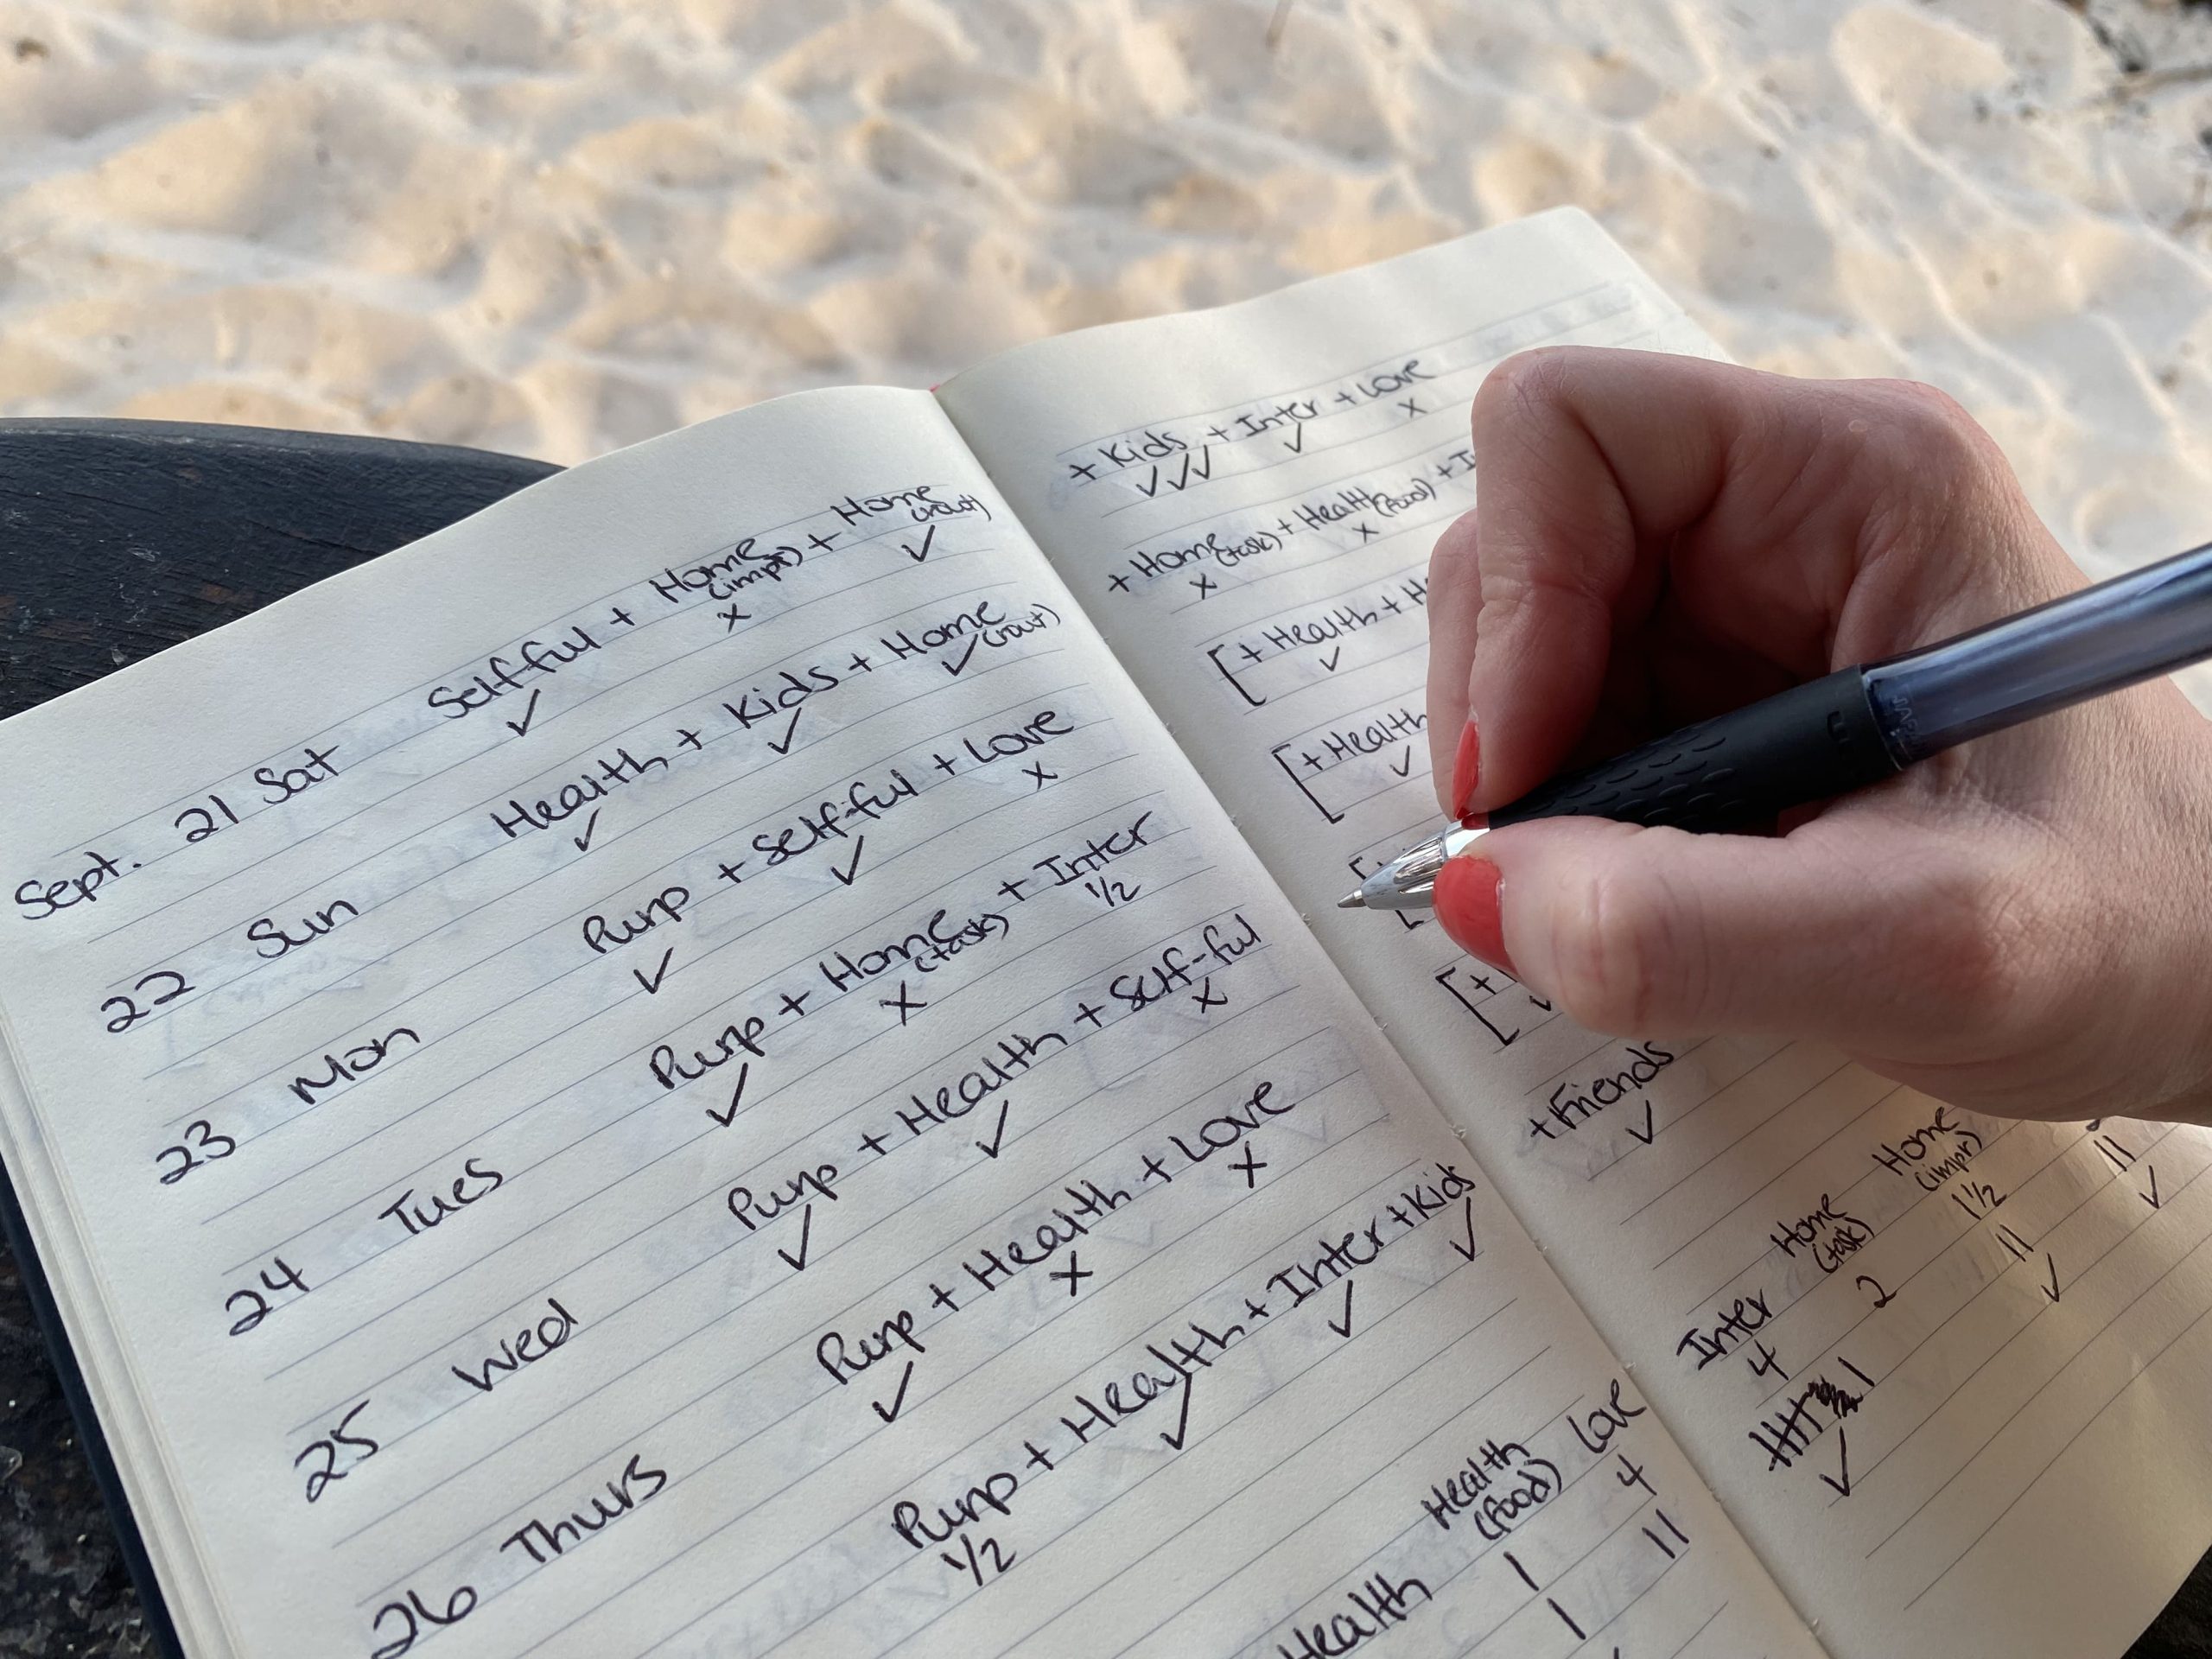 Sept. 21 Sat Self-ful + Home (impr) + Home (rout)
✓ x ✓
22 Sun Health + Kids + Home (rout)
✓ ✓ ✓
23 Mon Purp + Self-ful + Love
✓ ✓ x
24 Tues Purp + Home (task) + Inter
✓ x 1/2
25 Wed Purp + Health + Self-ful
✓ ✓ x
26 Thurs Purp + Health + Love
✓ x x
Purp + Health + Inter + Kids
1/2 ✓ ✓ ✓
Health Health (food) Love
1 4
1 11
+ Kids + Inter + Love
✓✓✓ ✓ x
+ Home (task) + Health (food) +
x x
[+ Health +
✓
[+ Health
✓
[+
+ Friends
✓
Inter Home (task) Home (impr)
4 2 1 1/2
11 11
✓ ✓ ✓